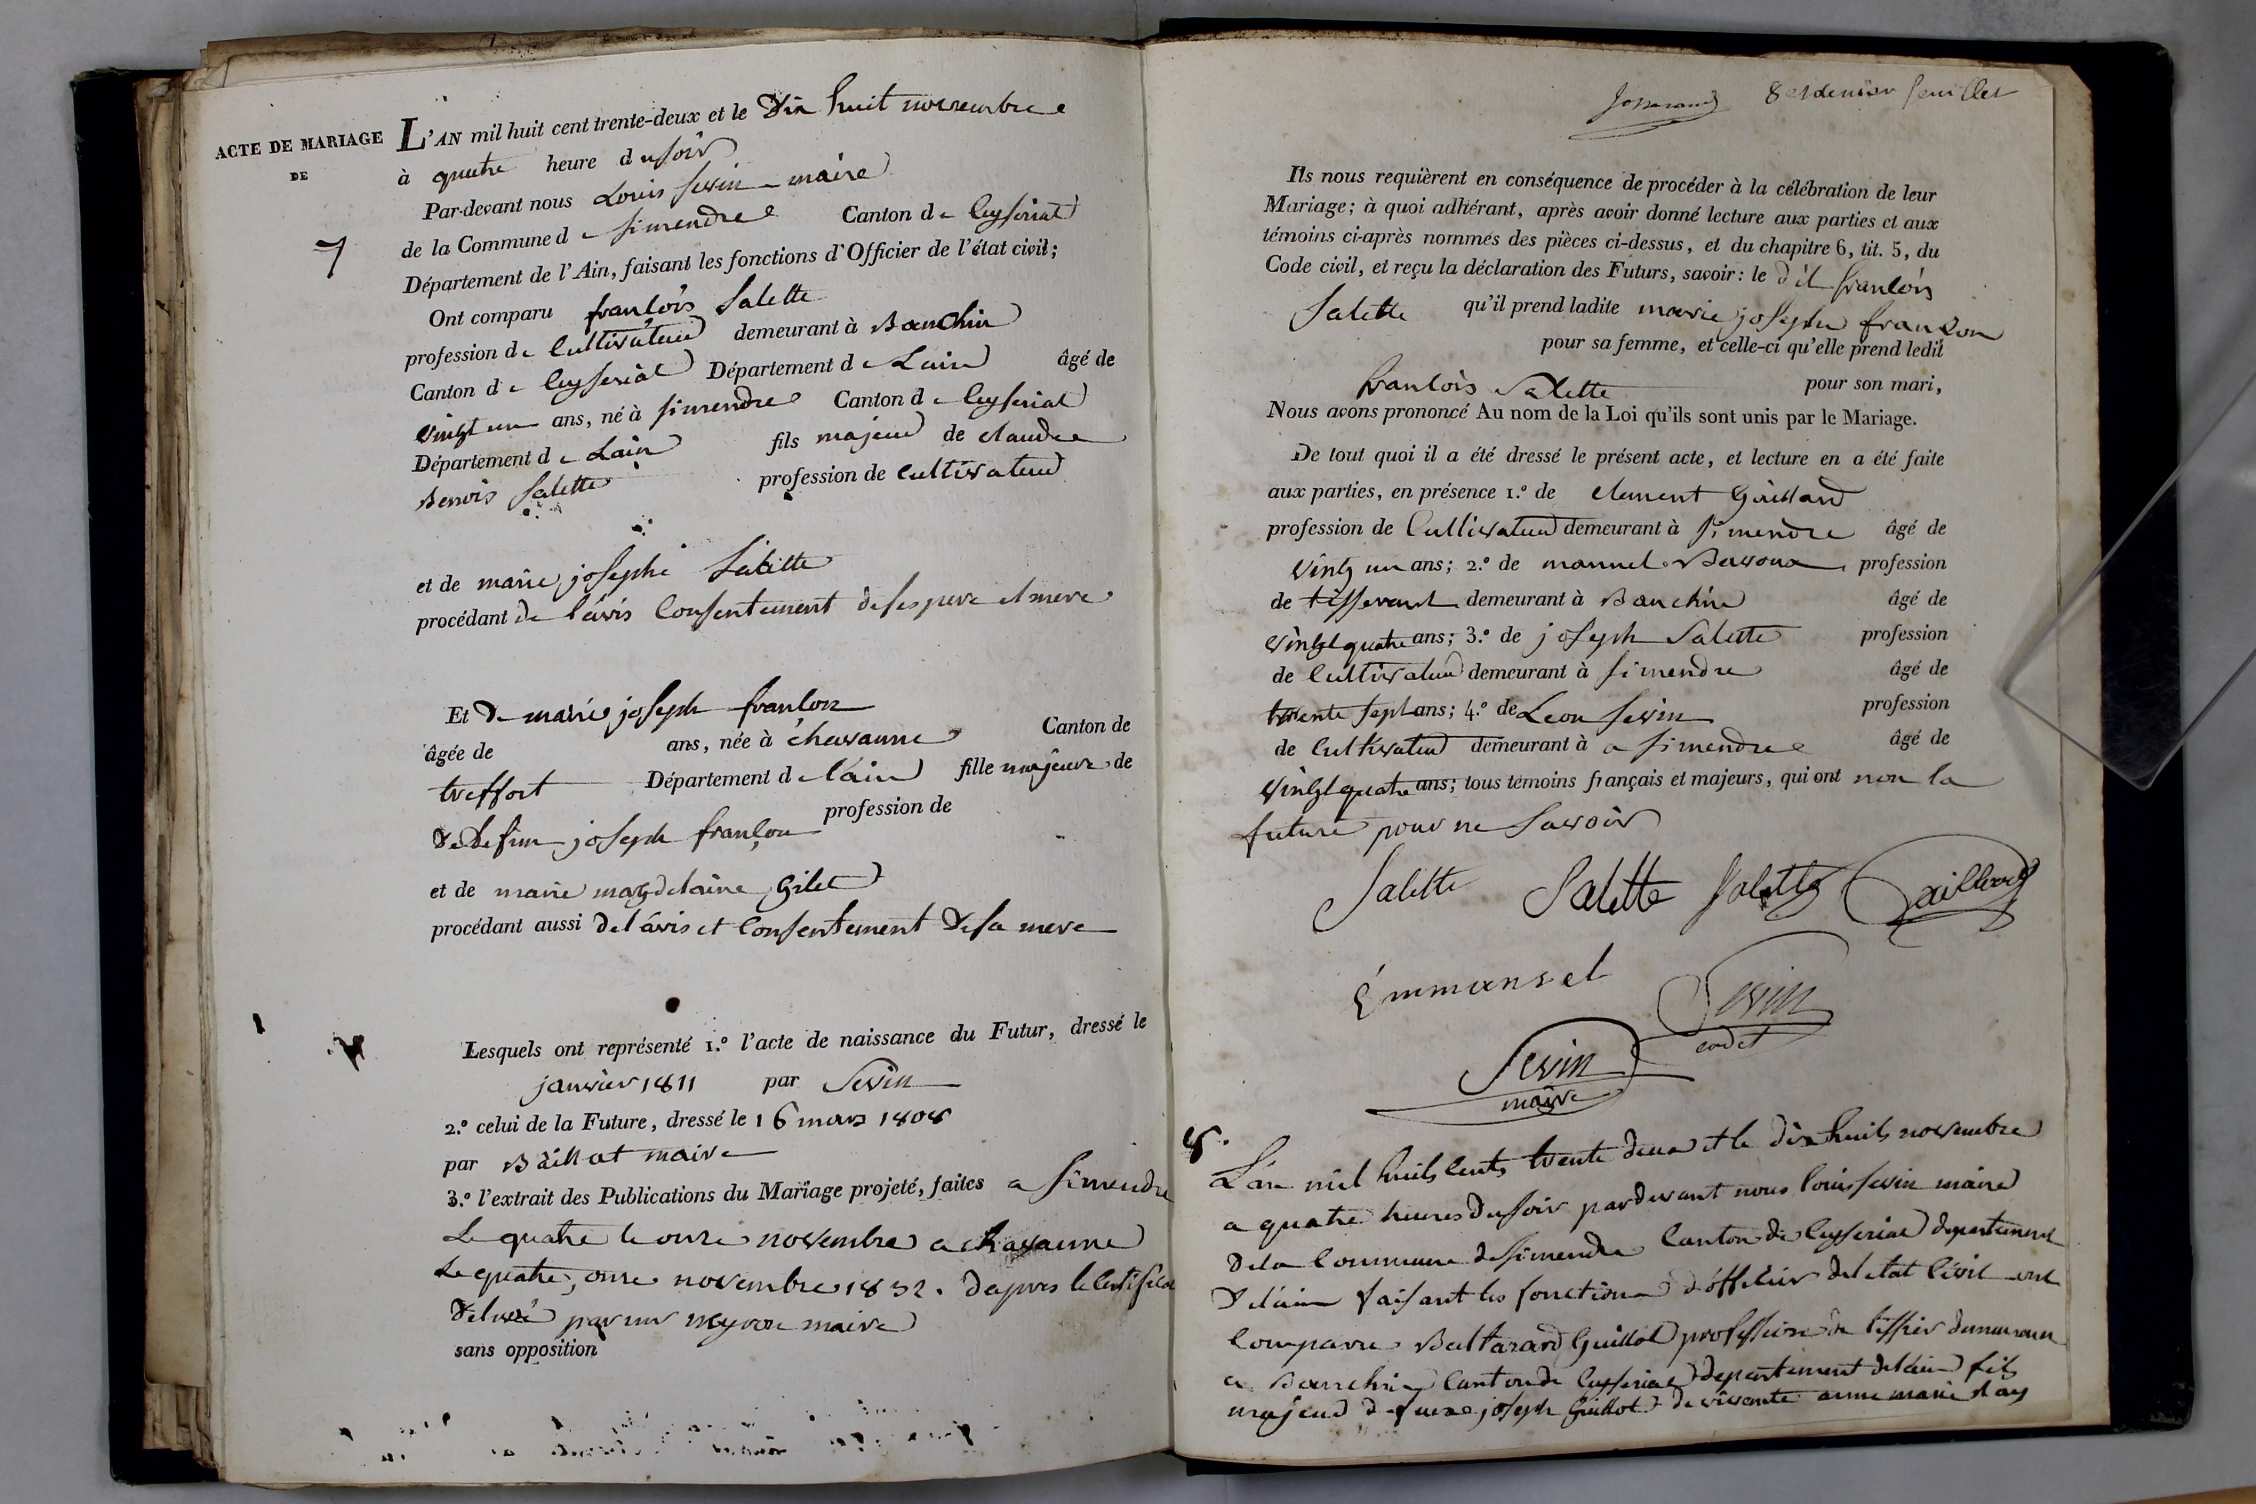 ACTE DE MARIAGE
DE
7
L'AN mil huit cent trente-deux et le Dix huit novembre
à quatre heure du soir
Par-devant nous Louis Sevin maire
de la Commune de Simendre Canton de Ceyseriat
Département de l'Ain, faisant les fonctions d'Officier de l'état civil;
Ont comparu françois Salette
profession de Cultivateur demeurant à Banchin
Canton de Ceyseriat Département de Lain âgé de
vingt un ans, né à Simendre Canton de Ceyseriat
Département de Lain fils majeur de claude
Benois Salette profession de cultivateur
et de marie josephe Salette
procédant de l'avis Consentement de ses pere et mere
Et De marie joseph françon
âgée de ans, née à chavanne Canton de
treffort Département de l'ain fille majeure de
De Defun joseph françon profession de
et de marie magdelaine Gilet
procédant aussi de l'avis et Consentement De sa mere
Lesquels ont représenté 1.º l'acte de naissance du Futur, dressé le
janvier 1811 par Sevin
2.º celui de la Future, dressé le 16 mars 1808
par Baillat maire
3.º l'extrait des Publications du Mariage projeté, faites a Simendre
Le quatre le onze novembre a chavanne
Le quatre, onze novembre 1832. dapres le Certificat
Delivré par mr Meyron maire
sans opposition
8 et dernier feuillet
Ils nous requièrent en conséquence de procéder à la célébration de leur
Mariage; à quoi adhérant, après avoir donné lecture aux parties et aux
témoins ci-après nommés des pièces ci-dessus, et du chapitre 6, tit. 5, du
Code civil, et reçu la déclaration des Futurs, savoir: le dit françois
Salette qu'il prend ladite marie joseph françon
pour sa femme, et celle-ci qu'elle prend ledit
françois Salette pour son mari,
Nous avons prononcé Au nom de la Loi qu'ils sont unis par le Mariage.
De tout quoi il a été dressé le présent acte, et lecture en a été faite
aux parties, en présence 1.º de clement Gaillard
profession de Cultivateur demeurant à Simendre âgé de
vingt un ans; 2.º de manuel profession
de tisserant demeurant à Banchin âgé de
vingt quatre ans; 3.º de joseph Salette profession
de Cultivateur demeurant à Simendre âgé de
trente sept ans; 4.º de Leon Sevin profession
de Cultivateur demeurant à a Simendre âgé de
vingt quatre ans; tous témoins français et majeurs, qui ont non la
future pour ne Savoir
Salette Salette Salette Gaillard
Emmanuel Sevin
cadet
Sevin
maire
8.
L'an mil huit cents trente deux et le dix huit novembre
a quatre heures du soir pardevant nous louis Sevin maire
De la Commune de Simendre Canton de Ceyseriat departement
De l'ain faisant les fonctions d'officier de l'etat Civil ont
Comparu Baltazard Guillot profession de demeurant
a Banchin Canton de Ceyseriat departement de l'ain fils
majeur de joseph Guillot de vivante anne marie